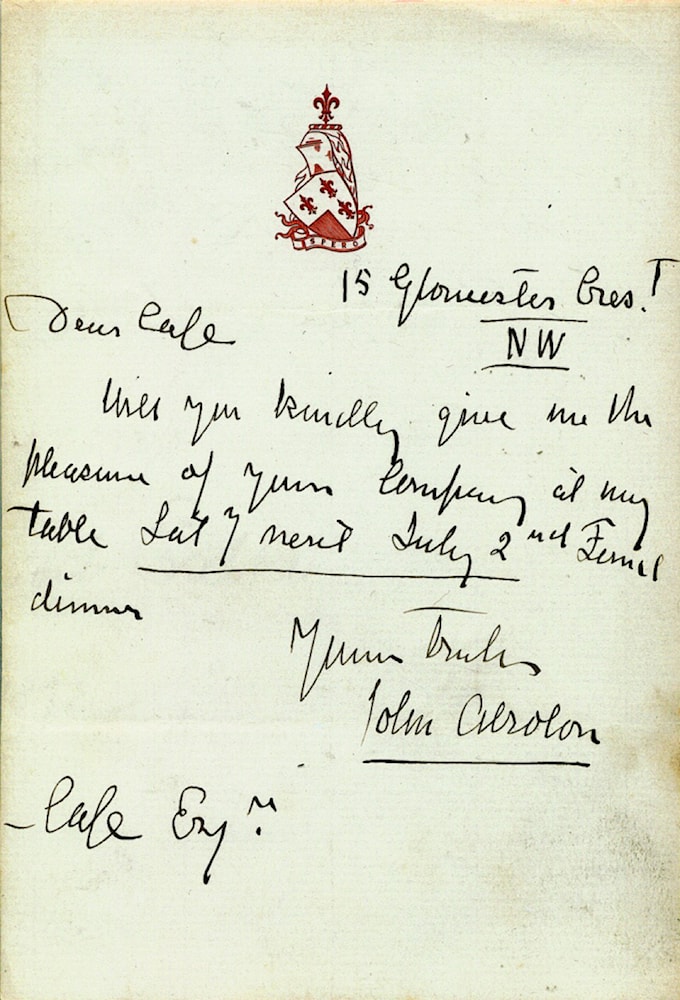 SPERO
15 Gloucester Cres.T
NW
Dear Cafe
Will you kindly give me the
pleasure of your Company at my
table Saty next July 2nd
dinner
Yours Truly
John
Cafe Esqr.